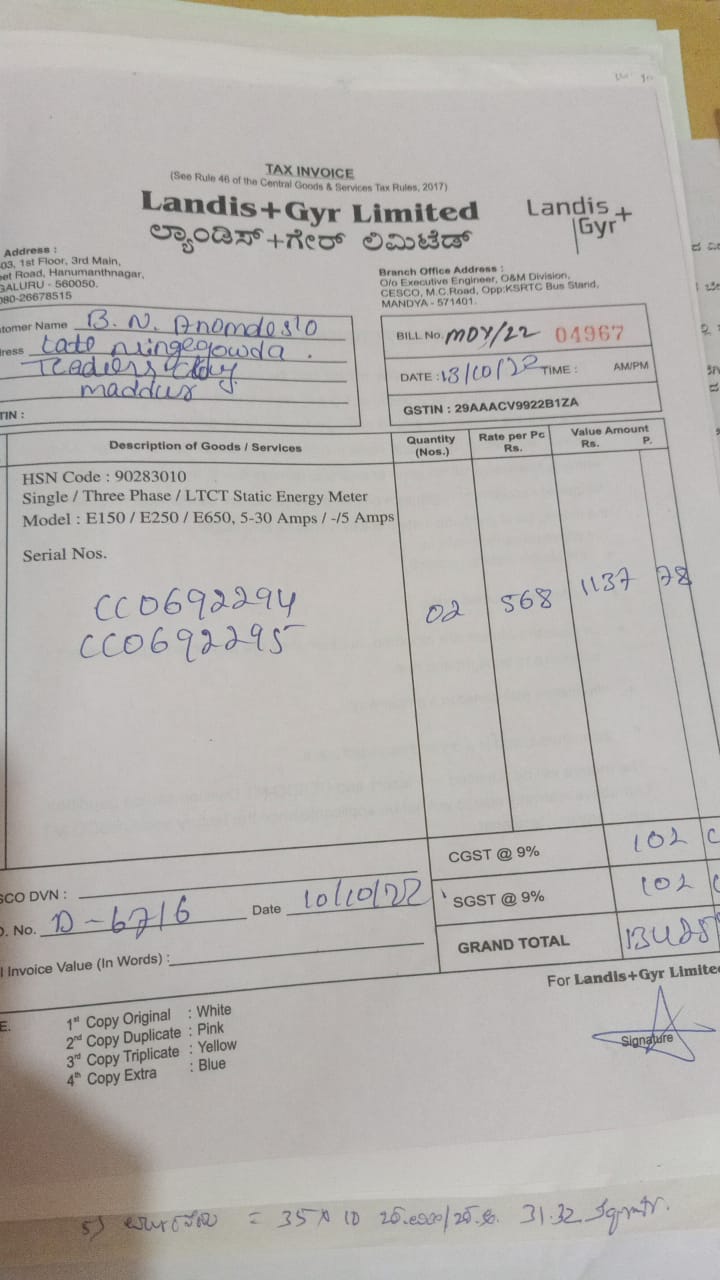 TAX INVOICE
(See Rule 46 of the Central Goods & Services Tax Rules, 2017)
Landis+Gyr Limited
ಲ್ಯಾಂಡಿಸ್+ಗೇರ್ ಲಿಮಿಟೆಡ್
Landis+
Gyr
Address :
03, 1st Floor, 3rd Main,
et Road, Hanumanthnagar,
GALURU - 560050.
080-26678515
Branch Office Address :
O/o Executive Engineer, O&M Division,
CESCO, M.C.Road, Opp:KSRTC Bus Stand,
MANDYA - 571401.
tomer Name B. N.
ress Late
maddur
TIN :
BILL No. MDY/22 04967
DATE : 13/10/22 TIME : AM/PM
GSTIN : 29AAACV9922B1ZA
Description of Goods / Services
Quantity (Nos.)
Rate per Pc Rs.
Value Amount Rs. P.
HSN Code : 90283010
Single / Three Phase / LTCT Static Energy Meter
Model : E150 / E250 / E650, 5-30 Amps / -/5 Amps
Serial Nos.
CC0692294
CC0692295
02 568 1137 28
CGST @ 9% 102
SGST @ 9% 102
GRAND TOTAL
SCO DVN :
. No. D-6716 Date 10/10/22
l Invoice Value (In Words) :
For Landis+Gyr Limite
Signature
E.
1st Copy Original : White
2nd Copy Duplicate : Pink
3rd Copy Triplicate : Yellow
4th Copy Extra : Blue
= 35 31.32 Sqmtr.